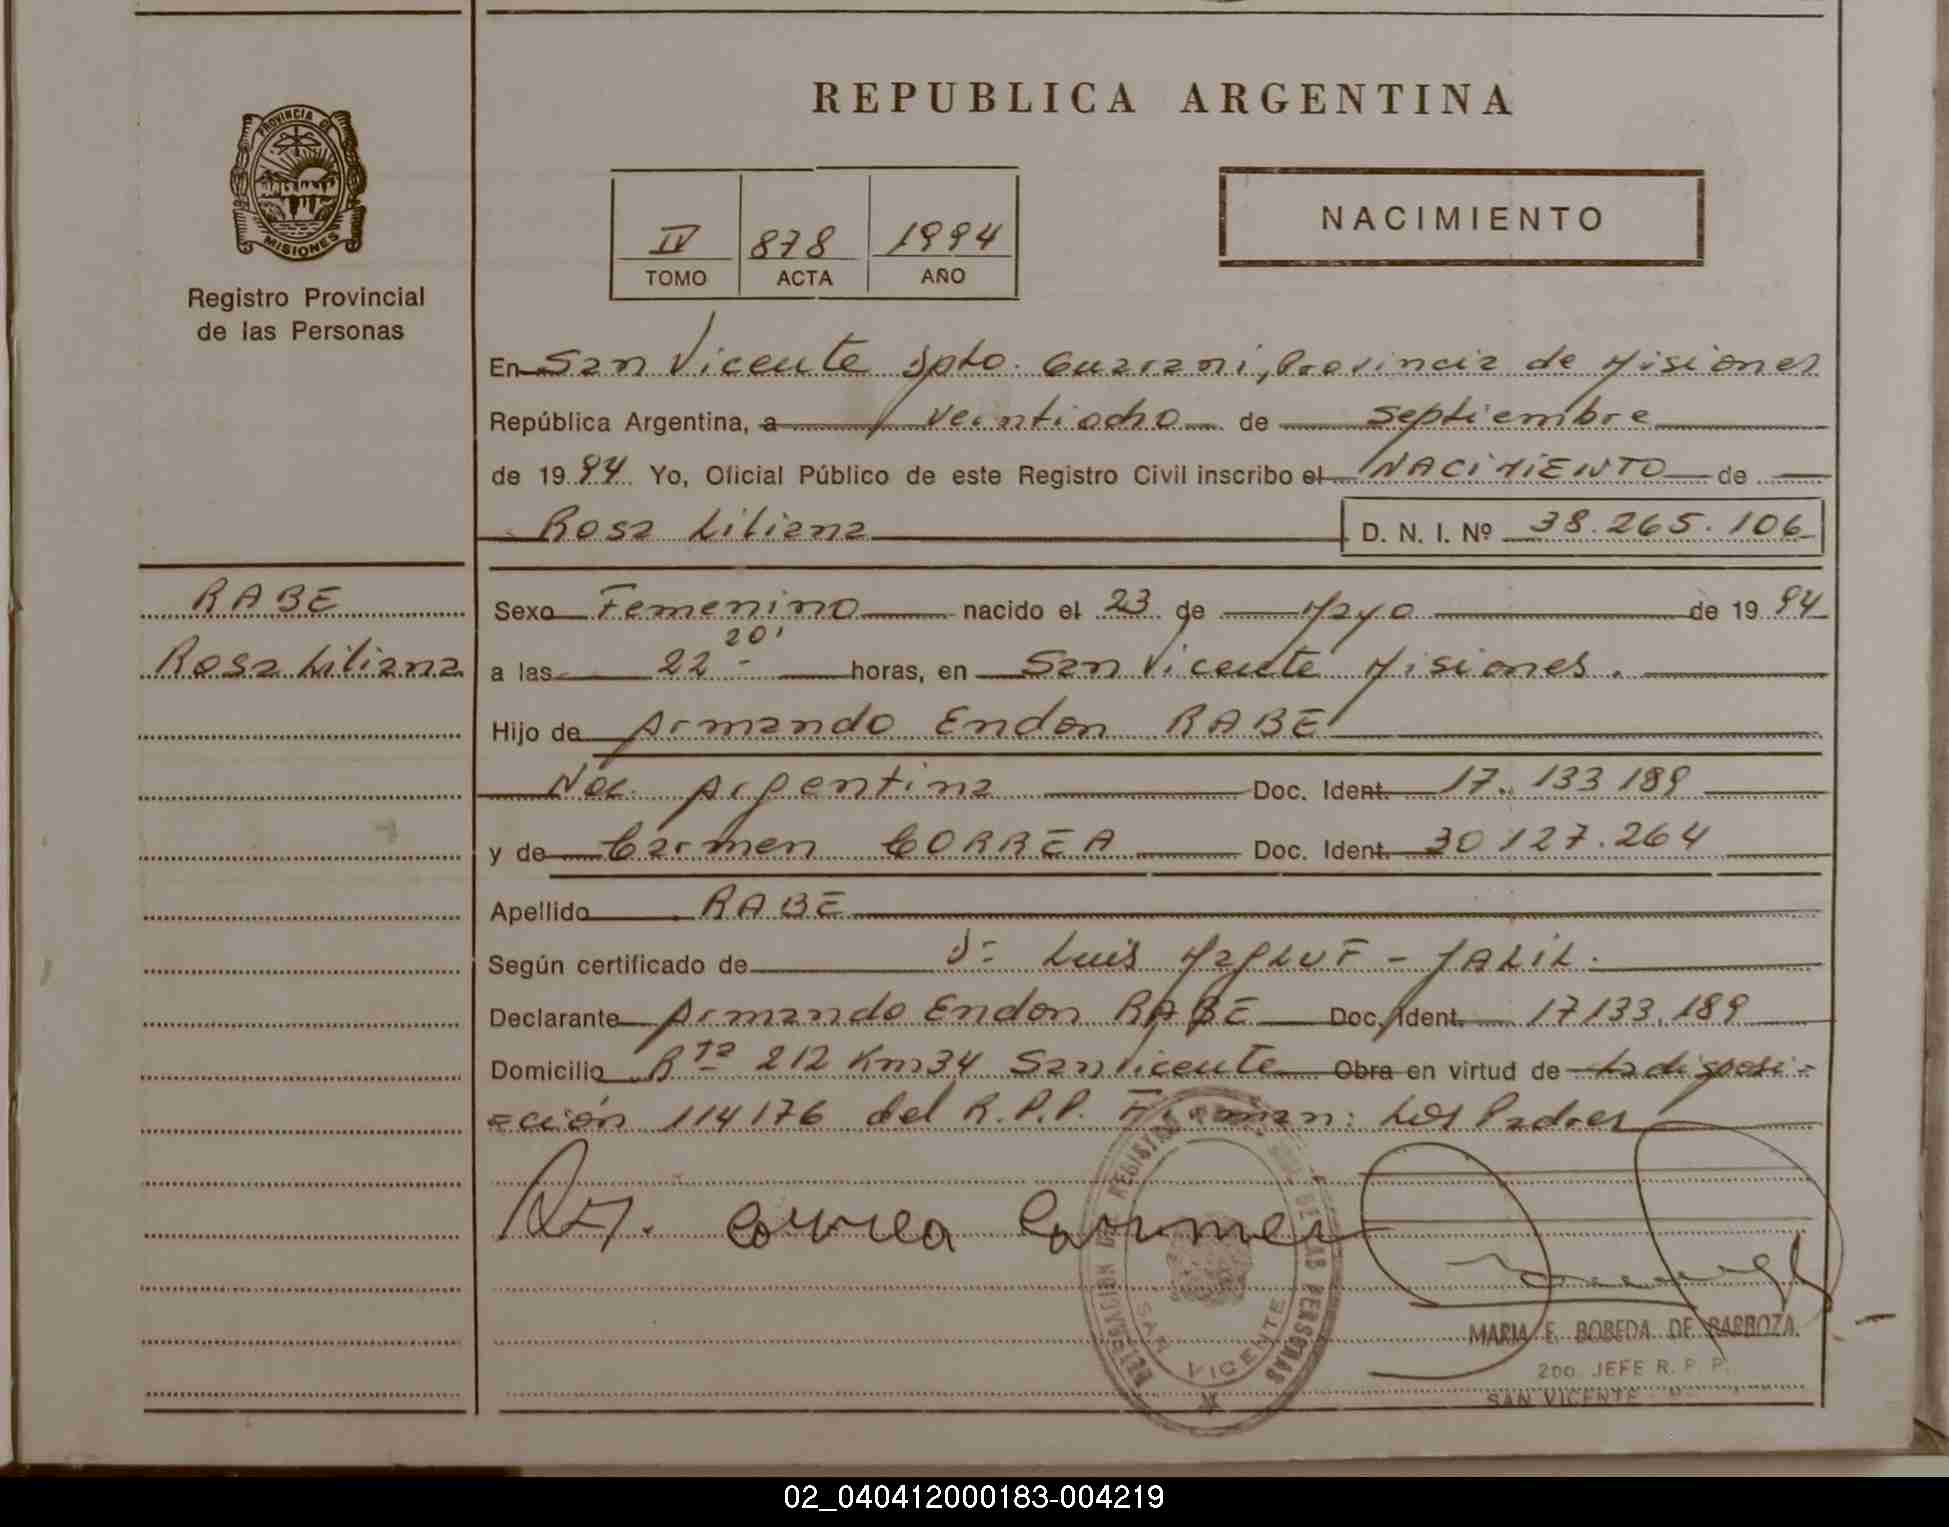 REPUBLICA ARGENTINA
PROVINCIA DE
MISIONES
Registro Provincial
de las Personas
IV 878 1994
TOMO ACTA AÑO
NACIMIENTO
En San Vicente Dpto. Guarani, Provincia de Misiones
República Argentina, a veintiocho de septiembre
de 1994 Yo, Oficial Público de este Registro Civil inscribo el NACIMIENTO de
Rosa Liliana D. N. I. Nº 38.265.106
RABE
Rosa Liliana
Sexo Femenino nacido el 23 de Mayo de 1994
a las 22 20' horas, en San Vicente Misiones.
Hijo de Armando Endon RABE
Nac. Argentina Doc. Ident. 17.133 189
y de Carmen CORREA Doc. Ident. 30127.264
Apellido RABE
Según certificado de Luis - JALIL.
Declarante Armando Endon RABE Doc. Ident. 17133.189
Domicilio Rta 212 Km34 San Vicente Obra en virtud de la disposi-
ción 114176 del R.P.P. Firman: Los Padres
Correa Carmen
DELEGACION DEL REGISTRO DE LAS PERSONAS
SAN VICENTE
MARIA E. BOBEDA DE BARBOZA
2DO. JEFE R. P. P.
SAN VICENTE
02_040412000183-004219